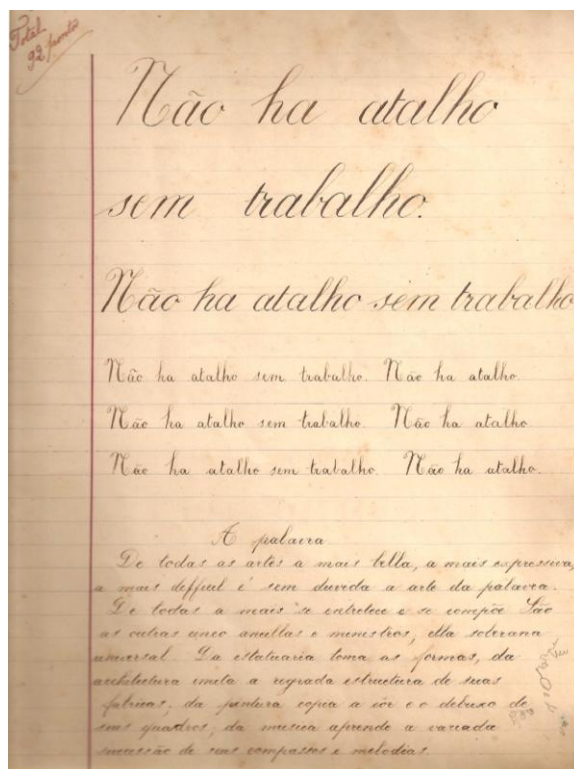 Total
92 pontos
Não ha atalho
sem trabalho.
Não ha atalho sem trabalho
Não ha atalho sem trabalho. Não ha atalho.
Não ha atalho sem trabalho. Não ha atalho
Não ha atalho sem trabalho. Não ha atalho.
A palavra
De todas as artes a mais bella, a mais expressiva,
a mais deffiul é sem duvida a arte da palavra.
De todas a mais se entretece e se compõe. São
as outras unco ancillas e ministros, ella soberana
universal. Da estatuaria toma as formas, da
architectura imita a regrada structura de suas
fabricas, da pintura copia a côr e o debuxo de
seus quadros, da musica aprende a variada
sucessão de seus compassos e melodias.